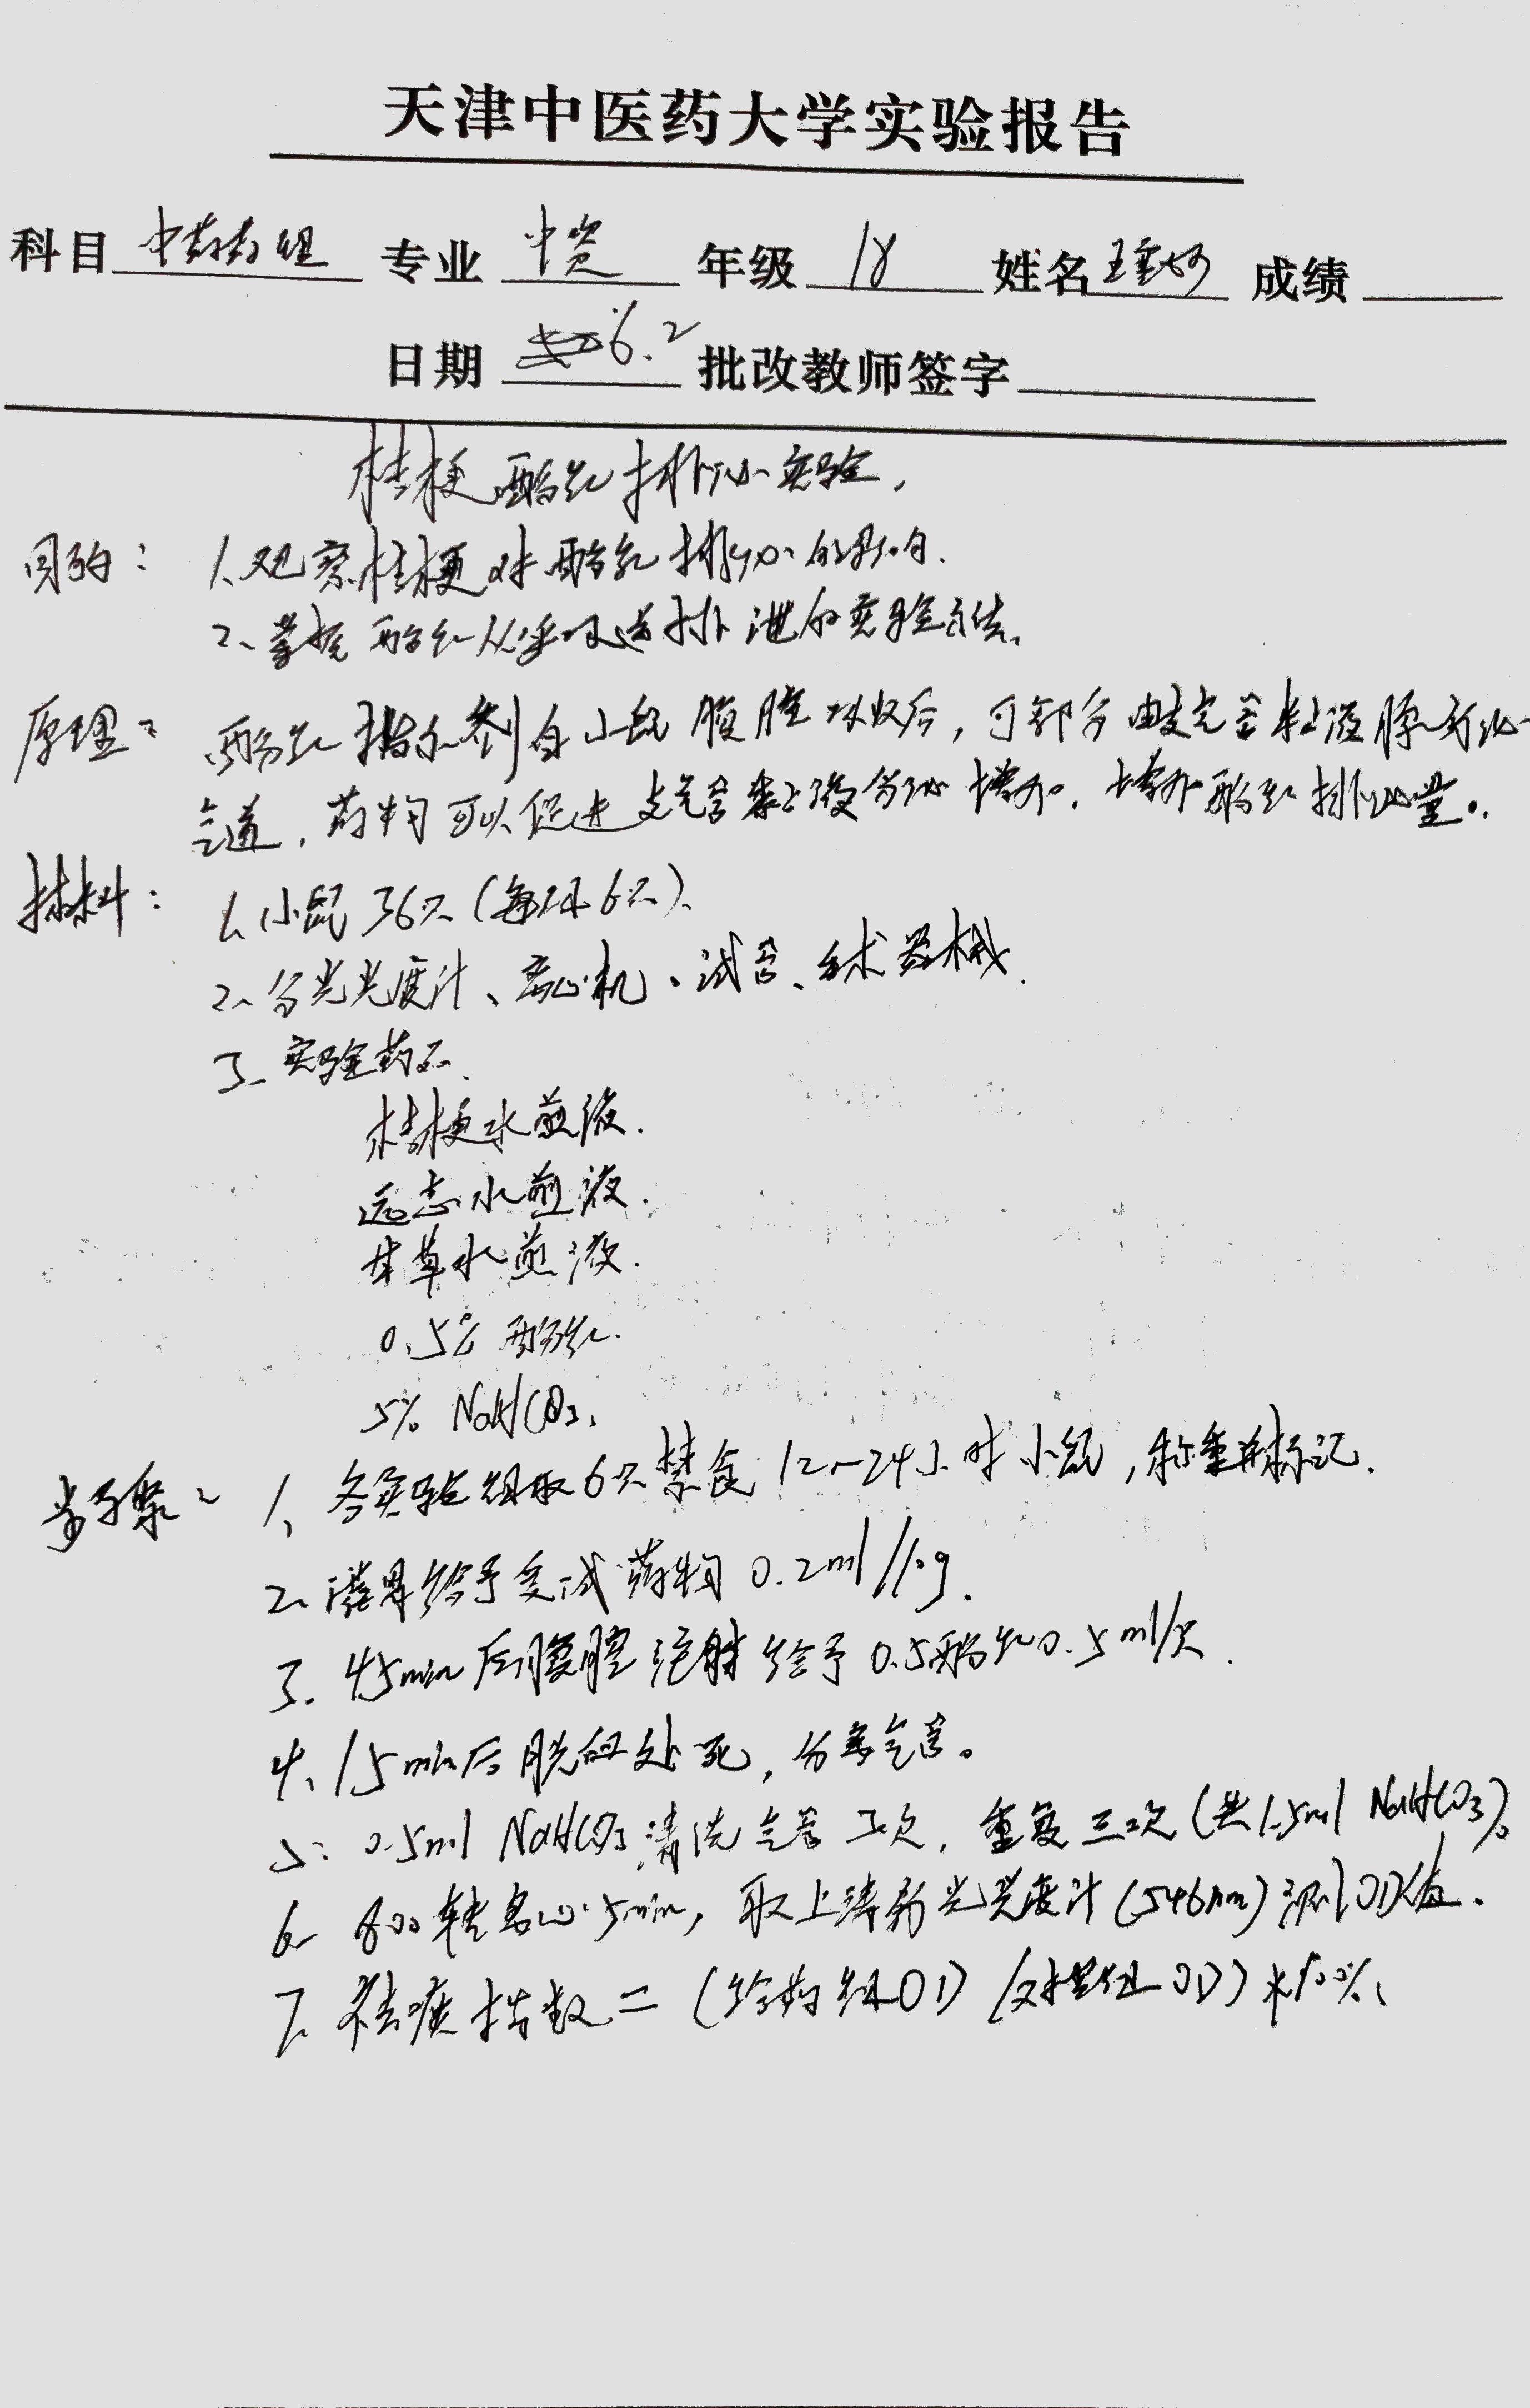 天津中医药大学实验报告
科目 专业 中资 年级 18 姓名 王 成绩
日期 6.2 批改教师签字
桔梗酚红排泌实验,
目的: 1.观察桔梗对酚红排泌的影响.
2、掌握酚红从呼吸道排泄的实验方法。
原理: 酚红指示剂自小鼠腹腔吸收后,可部分由支气管粘液腺分泌
气道,药物可以促进支气管黏液分泌增加.增加酚红排泌量。
材料: 1.小鼠36只(每组6只)、
2、分光光度计、离心机、试管、手术器械.
3、实验药品.
桔梗水煎液.
远志水煎液.
甘草水煎液.
0.5%酚红.
5% NaHCO3.
步骤: 1、各实验组取6只禁食12~24小时小鼠,称重并标记.
2、灌胃给予受试药物0.2ml/10g.
3. 45min后腹腔注射给予0.5酚红0.5ml/只.
4、15min后脱臼处死,分离气管。
5. 0.5ml NaHCO3清洗气管3次,重复三次(共1.5ml NaHCO3)。
6、800转离心5min,取上清 光光度计(546nm)测OD值.
7、祛痰指数=(给药组OD/对照组OD)*100%、